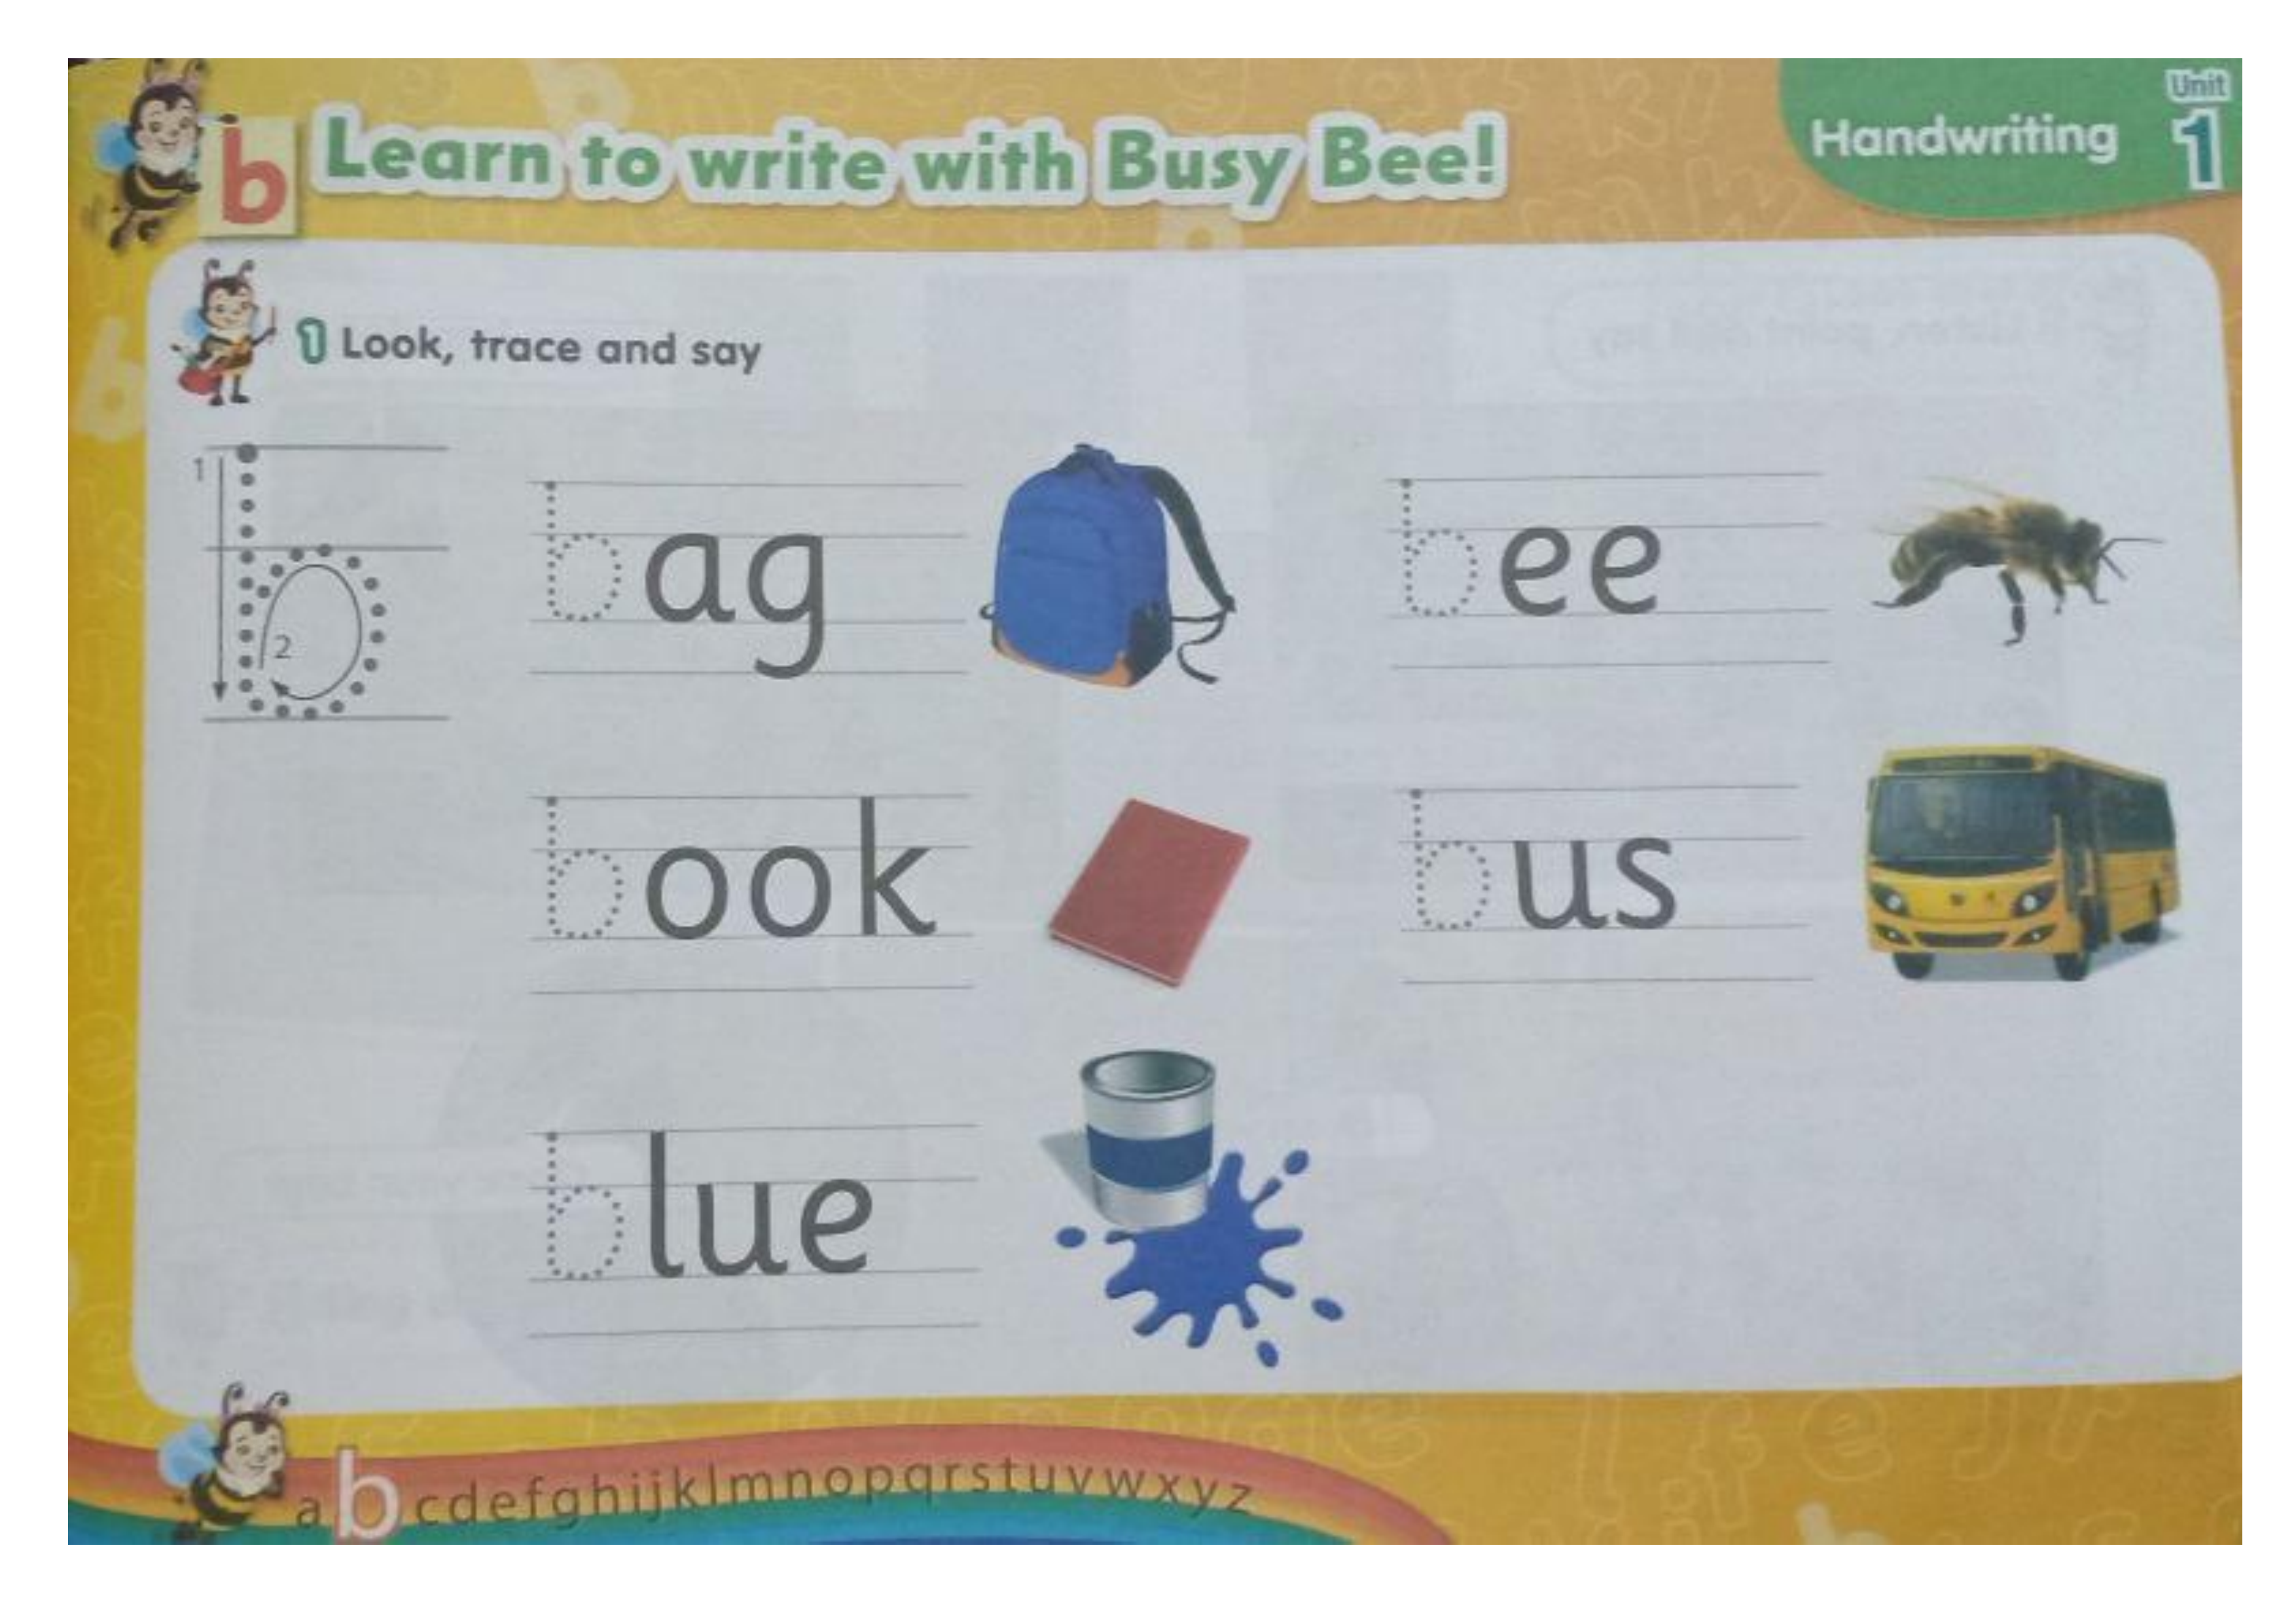 b Learn to write with Busy Bee!
Handwriting Unit 1
1 Look, trace and say
1
b
2
bag
bee
book
bus
blue
a b c d e f g h i j k l m n o p q r s t u v w x y z